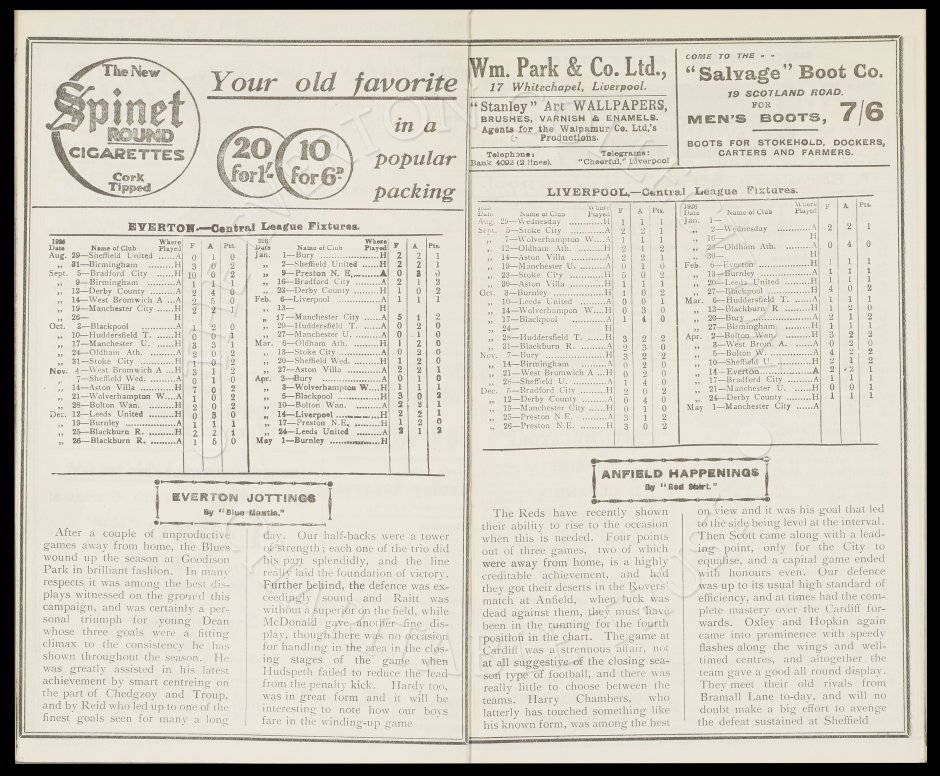 The New
Spinet
ROUND
CIGARETTES
Cork
Tipped
Your old favorite
in a
popular
packing
20
for 1/-
10
for 6D
EVERTON.—Central League Fixtures.
1925 Date Name of Club Where Played F A Pts.
Aug. 29—Sheffield United ......A 0 1 0
„ 31—Birmingham ............H 3 0 2
Sept. 5—Bradford City .........H 10 0 2
„ 9—Birmingham ............A 1 1 1
„ 12—Derby County .........A 2 4 0
„ 14—West Bromwich A ...A 2 5 0
„ 19—Manchester City ......H 2 2 1
„ 26— H
Oct. 3—Blackpool ...............A 1 2 0
„ 10—Huddersfield T. .........H 0 0 1
„ 17—Manchester U. .........H 3 3 1
„ 24—Oldham Ath. ............A 2 0 2
„ 31—Stoke City ...............H 1 0 2
Nov. 4—West Bromwich A ...H 3 1 2
„ 7—Sheffield Wed. .........A 0 1 0
„ 14—Aston Villa ...............H 7 0 2
„ 21—Wolverhampton W...A 1 0 2
„ 28—Bolton Wan. ............H 2 0 2
Dec. 12—Leeds United .........H 0 3 0
„ 19—Burnley ..................A 1 1 1
„ 25—Blackburn R. ............H 2 2 1
„ 26—Blackburn R. ............A 1 5 0
Date Name of Club Where Played F A Pts.
Jan. 1—Bury .....................H 2 2 1
„ 2—Sheffield United ......H 2 2 1
„ 9—Preston N. E. .........A 0 3 0
„ 16—Bradford City .........A 2 1 2
„ 23—Derby County .........H 1 0 2
Feb. 6—Liverpool ...............A 1 1 1
„ 13— H
„ 17—Manchester City ......A 5 1 2
„ 20—Huddersfield T. ......A 0 2 0
„ 27—Manchester U. .........A 0 1 0
Mar. 6—Oldham Ath. .........H 1 2 0
„ 13—Stoke City ............A 0 2 0
„ 20—Sheffield Wed. .........H 1 2 0
„ 27—Aston Villa ............A 2 2 1
Apr. 2—Bury .....................A 0 1 0
„ 3—Wolverhampton W...H 1 1 1
„ 5—Blackpool ...............H 3 0 2
„ 10—Bolton Wan. .........A 2 2 1
„ 14—Liverpool ...............H 2 2 1
„ 17—Preston N.E. .........H 1 2 0
„ 24—Leeds United .........A 2 1 2
May 1—Burnley ..................H
EVERTON JOTTINGS
By "Blue Mantle."
After a couple of unproductive
games away from home, the Blues
wound up the season at Goodison
Park in brilliant fashion. In many
respects it was among the best dis-
plays witnessed on the ground this
campaign, and was certainly a per-
sonal triumph for young Dean
whose three goals were a fitting
climax to the consistency he has
shown throughout the season. He
was greatly assisted in his latest
achievement by smart centreing on
the part of Chedgzoy and Troup,
and by Reid who led up to one of the
finest goals seen for many a long
day. Our half-backs were a tower
of strength; each one of the trio did
his part splendidly, and the line
really laid the foundation of victory.
Further behind, the defence was ex-
ceedingly sound and Raitt was
without a superior on the field, while
McDonald gave another fine dis-
play, though there was no occasion
for handling in the area in the clos-
ing stages of the game when
Hudspeth failed to reduce the lead
from the penalty kick. Hardy too,
was in great form and it will be
interesting to note how our boys
fare in the winding-up game
Wm. Park & Co. Ltd.,
17 Whitechapel, Liverpool.
"Stanley" Art WALLPAPERS,
BRUSHES, VARNISH & ENAMELS.
Agents for the Walpamur Co. Ltd.'s
Productions.
Telephone: Telegrams:
Bank 4092 (2 lines). "Cheerful," Liverpool
COME TO THE - -
"Salvage" Boot Co.
19 SCOTLAND ROAD.
FOR
MEN'S BOOTS, 7/6
BOOTS FOR STOKEHOLD, DOCKERS,
CARTERS AND FARMERS.
LIVERPOOL.—Central League Fixtures.
Date Name of Club Where Played F A Pts.
Aug. 29—Wednesday ............H 1 1 1
Sept. 5—Stoke City ...............H 2 2 1
„ 7—Wolverhampton W...A 1 1 1
„ 12—Oldham Ath. ............H 2 1 2
„ 14—Aston Villa ............A 2 2 1
„ 19—Manchester U. .........A 0 1 0
„ 23—Stoke City ...............H 5 0 2
„ 30—Aston Villa ............H 1 1 1
Oct. 3—Burnley ..................H 1 0 2
„ 10—Leeds United .........A 0 0 1
„ 14—Wolverhampton W...H 0 3 0
„ 17—Blackpool ...............A 1 4 0
„ 24— H
„ 28—Huddersfield T. .........H 3 2 2
„ 31—Blackburn R. ............A 2 3 0
Nov. 7—Bury .....................H 3 2 2
„ 14—Birmingham ............A 0 2 0
„ 21—West Bromwich A ...H 0 2 0
„ 28—Sheffield U. ............A 1 4 0
Dec. 5—Bradford City .........H 2 0 2
„ 12—Derby County .........A 0 4 0
„ 19—Manchester City ......H 0 1 0
„ 25—Preston N.E. ............A 3 1 2
„ 26—Preston N.E. ............H 3 0 2
1926 Date Name of Club Where Played F A Pts.
Jan. 1—
„ 2—Wednesday ............A 2 2 1
„ 16— H
„ 23—Oldham Ath. .........A 0 4 0
„ 30—
Feb. 6—Everton ..................H 1 1 1
„ 13—Burnley ..................A 1 1 1
„ 20—Leeds United .........H 1 1 1
„ 27—Blackpool ...............H 4 0 2
Mar. 6—Huddersfield T. ......A 1 1 1
„ 13—Blackburn R. .........H 1 2 0
„ 20—Bury .....................A 2 1 2
„ 27—Birmingham ............H 1 1 1
Apr. 2—Bolton Wan. .........H 2 3 0
„ 3—West Brom. A. .........A 0 2 0
„ 5—Bolton W. ...............A 4 2 2
„ 10—Sheffield U. ............H 2 1 2
„ 14—Everton ..................A 2 2 1
„ 17—Bradford City .........A 1 1 1
„ 21—Manchester U. .........H 0 1 0
„ 24—Derby County .........H 1 1 1
May 1—Manchester City ......A
ANFIELD HAPPENINGS
By "Red Shirt."
The Reds have recently shown
their ability to rise to the occasion
when this is needed. Four points
out of three games, two of which
were away from home, is a highly
creditable achievement, and had
they got their deserts in the Rovers'
match at Anfield, when luck was
dead against them, they must have
been in the running for the fourth
position in the chart. The game at
Cardiff was a strenuous affair, not
at all suggestive of the closing sea-
son type of football, and there was
really little to choose between the
teams. Harry Chambers, who
latterly has touched something like
his known form, was among the best
on view and it was his goal that led
to the side being level at the interval.
Then Scott came along with a lead-
ing point, only for the City to
equalise, and a capital game ended
with honours even. Our defence
was up to its usual high standard of
efficiency, and at times had the com-
plete mastery over the Cardiff for-
wards. Oxley and Hopkin again
came into prominence with speedy
flashes along the wings and well-
timed centres, and altogether the
team gave a good all round display.
They meet their old rivals from
Bramall Lane to-day, and will no
doubt make a big effort to avenge
the defeat sustained at Sheffield